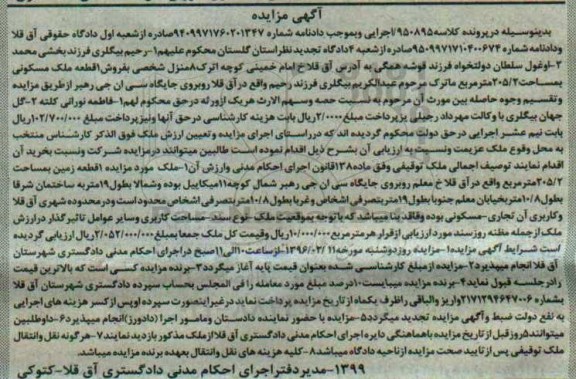 آگهی مزایده
بدینوسیله درپرونده کلاسه۹۵۰۸۹۵/اجرایی وبموجب دادنامه شماره ۹۴۰۹۹۷۱۷۶۰۲۰۱۳۴۷صادره ازشعبه اول دادگاه حقوقی آق قلا
ودادنامه شماره ۹۵۰۹۹۷۱۷۱۰۴۰۰۶۷۴صادره ازشعبه ۴دادگاه تجدید نظراستان گلستان محکوم علیهم۱-رحیم بیگلری فرزند بخشی محمد
۲-اوغول سلطان دولتخواه فرزند قوشه همگی به آدرس آق قلاخ امام خمینی کوچه اترک۸منزل شخصی بفروش۱قطعه ملک مسکونی
بمساحت۲۰۵/۲مترمربع ماترک مرحوم عبدالکریم بیگلری فرزند رحیم واقع درآق قلا روبروی جایگاه سی ان جی رهبر ازطریق مزایده
وتقسیم وجوه حاصله بین مورث آن مرحوم به نسبت حصه وسهم الارث هریک ازورثه درحق محکوم لهم۱-فاطمه نورانی کلته ۲-گل
جهان بیگلری با وکالت مهرداد رجبلی یزپرداخت مبلغ۲/۰۰۰/۰۰۰ریال بابت هزینه کارشناسی درحق آنها ونیزپرداخت مبلغ ۱۰۲/۷۰۰/۰۰۰ریال
بابت نیم عشر اجرایی درحق دولت محکوم گردیده اند که درراستای اجرای مزایده وتعیین ارزش ملک فوق الذکر کارشناس منتخب
به محل وقوع ملک عزیمت ونسبت به ارزیابی آن بشرح ذیل اقدام نموده است طالبین میتوانند درمزایده شرکت ونسبت بخرید آن
اقدام نمایند توصیف اجمالی ملک توقیفی وفق ماده۱۳۸قانون اجرای احکام مدنی وارزش آن۱-ملک مورد مزایده ۱قطعه زمین بمساحت
۲۰۵/۲مترمربع واقع درآق قلا خ معلم روبروی جایگاه سی ان جی رهبر شمال کوچه۱۱میکاییل بوده وشمالا بطول۱۹متربه ساختمان شرقا
بطول۱۰/۸متربخیابان معلم جنوبا بطول۱۹متربتصرفی اشخاص وغربا بطول۱۰/۸متربتصرفی اشخاص محدوداست ودرمحدوده شهری آق قلا
وکاربری آن تجاری-مسکونی بوده وفاقد بنا میباشد که با توجه بموقعیت ملک نوع سند- مساحت کاربری وسایر عوامل تاثیرگذار درارزش
ملک ازجمله مظنه روزسند مورد ارزیابی ازقرار هرمترمربع۱۰/۰۰۰/۰۰۰ریال وقیمت کل ملک جمعا بمبلغ۲/۰۵۲/۰۰۰/۰۰۰ریال ارزیابی گردیده
است شرایط آگهی مزایده۱-مزایده روزدوشنبه مورخه۱۳۹۶/۰۲/۱۱ ازساعت۱۰الی۱۱صبح دراجرای احکام مدنی دادگستری شهرستان
آق قلا انجام میپذیرد۲-مزایده ازمبلغ کارشناسی شده بعنوان قیمت پایه آغاز میگردد۳-برنده مزایده کسی است که بالاترین قیمت
رادرجلسه قبول نماید۴-برنده مزایده میبایست۱۰درصد مبلغ مورد معامله را فی المجلس بحساب سپرده دادگستری شهرستان آق قلا
بشماره ۲۱۷۱۲۹۴۶۴۷۰۰۶واریز والباقی راظرف یکماه ازتاریخ مزایده پرداخت نماید درغیراینصورت سپرده اوپس ازکسر هزینه های اجرایی
به نفع دولت ضبط وآگهی مزایده تجدید میگردد۵-مزایده با حضور نماینده دادستان ومامور اجرا (دادورز) انجام میپذیرد۶-داوطلبین
میتوانند۵روز قبل ازتاریخ مزایده باهماهنگی دایره اجرای احکام مدنی دادگستری آق قلاازملک مذکور بازدید نمایند۷-هرگونه نقل وانتقال
ملک توقیفی پس ازتایید صحت مزایده ازناحیه دادگاه میباشد۸-کلیه هزینه های نقل وانتقال بعهده برنده مزایده میباشد.
۱۳۹۹-مدیردفتراجرای احکام مدنی دادگستری آق قلا-کتوکی